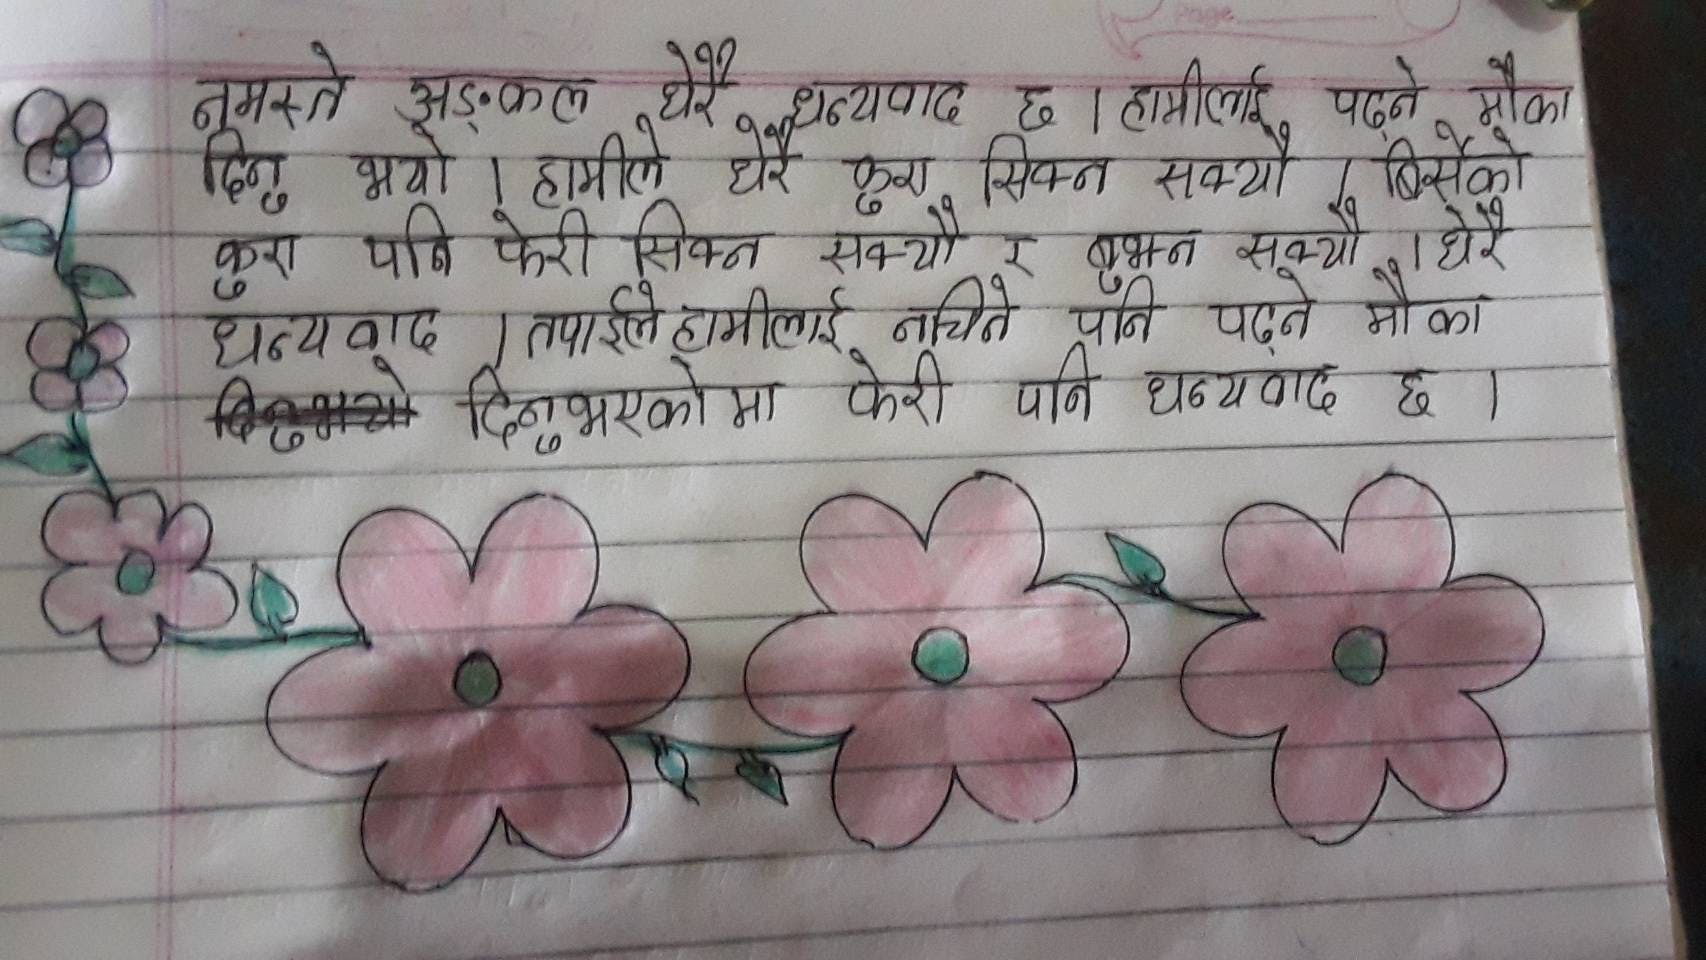 Page
नमस्ते अङ्कल धेरै धन्यवाद छ । हामीलाई पढ्ने मौका
दिनु भयो । हामीले धेरै कुरा सिक्न सक्यौ । बिर्सेको
कुरा पनि फेरी सिक्न सक्यौ र बुझ्न सक्यौ । धेरै
धन्यवाद । तपाईले हामीलाई नचिने पनि पढ्ने मौका
दिनुभएकोमा फेरी पनि धन्यवाद छ ।